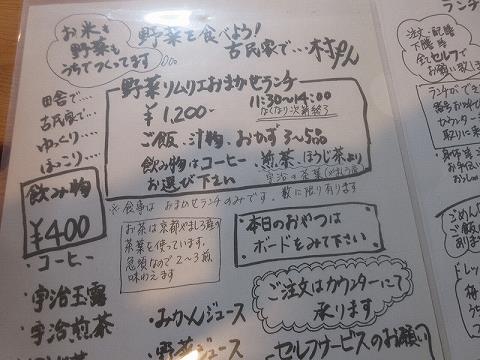 お米も
野菜も
うちでつくってます
野菜を食べよう!
古民家で…村やん
田舎で…
古民家で…
ゆっくり…
ほっこり…
野菜ソムリエおまかせランチ
¥1,200-
11:30~14:00
なくなり次第終了
ご飯、汁物、おかず3~5品
飲み物はコーヒー、煎茶、ほうじ茶より
お選び下さい
数に限り有ります
※食事は おまかせランチのみです。
飲み物
¥400
・コーヒー
・宇治玉露
・宇治煎茶
お茶は京都やましろ産の
茶葉を使っています。
急須なので2~3煎、
味わえます
本日のおやつは
ボードをみて下さい
ご注文はカウンターにて
承ります
・みかんジュース
・野菜ジュース
セルフサービスのお願い
注文・配膳
下膳等
全てセルフで
お願い致し
ランチ
ランチができ
番号お呼び
カウンター
取りに来